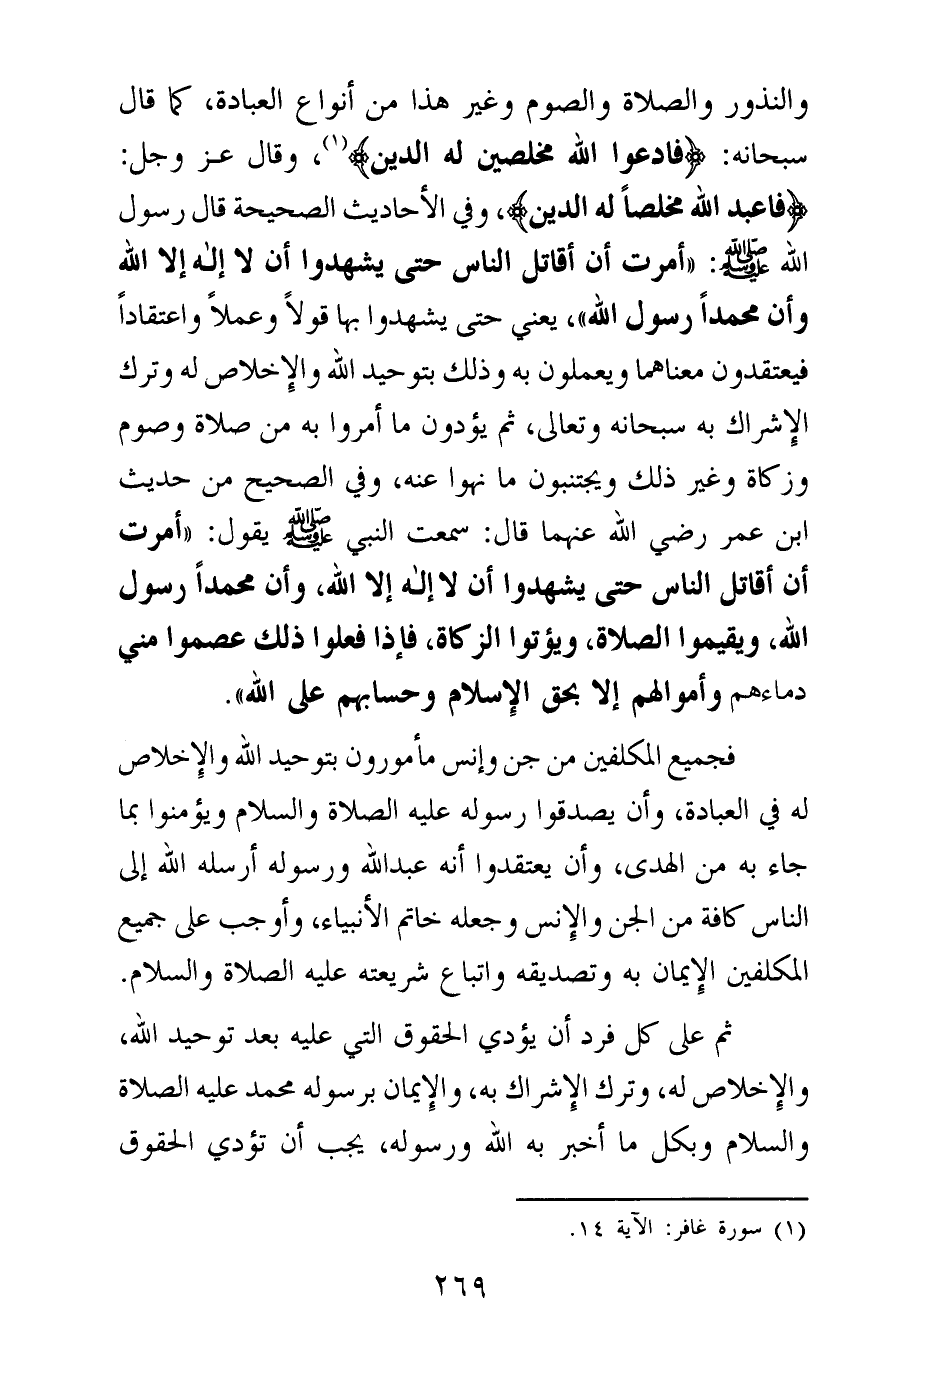 والنذور والصلاة والصوم وغير هذا من أنواع العبادة، كما قال
سبحانه: ﴿فادعوا الله مخلصين له الدين﴾(١)، وقال عز وجل:
﴿فاعبد الله مخلصاً له الدين﴾، وفي الأحاديث الصحيحة قال رسول
الله ﷺ: «أمرت أن أقاتل الناس حتى يشهدوا أن لا إلٰه إلا الله
وأن محمداً رسول الله»، يعني حتى يشهدوا بها قولاً وعملاً واعتقاداً
فيعتقدون معناهما ويعملون به وذلك بتوحيد الله والإخلاص له وترك
الإشراك به سبحانه وتعالى، ثم يؤدون ما أمروا به من صلاة وصوم
وزكاة وغير ذلك ويجتنبون ما نهوا عنه، وفي الصحيح من حديث
ابن عمر رضي الله عنهما قال: سمعت النبي ﷺ يقول: «أمرت
أن أقاتل الناس حتى يشهدوا أن لا إلٰه إلا الله، وأن محمداً رسول
الله، ويقيموا الصلاة، ويؤتوا الزكاة، فإذا فعلوا ذلك عصموا مني
دماءهم وأموالهم إلا بحق الإسلام وحسابهم على الله».
فجميع المكلفين من جن وإنس مأمورون بتوحيد الله والإخلاص
له في العبادة، وأن يصدقوا رسوله عليه الصلاة والسلام ويؤمنوا بما
جاء به من الهدى، وأن يعتقدوا أنه عبدالله ورسوله أرسله الله إلى
الناس كافة من الجن والإنس وجعله خاتم الأنبياء، وأوجب على جميع
المكلفين الإيمان به وتصديقه واتباع شريعته عليه الصلاة والسلام.
ثم على كل فرد أن يؤدي الحقوق التي عليه بعد توحيد الله،
والإخلاص له، وترك الإشراك به، والإيمان برسوله محمد عليه الصلاة
والسلام وبكل ما أخبر به الله ورسوله، يجب أن تؤدي الحقوق
(١) سورة غافر: الآية ١٤.
٢٦٩